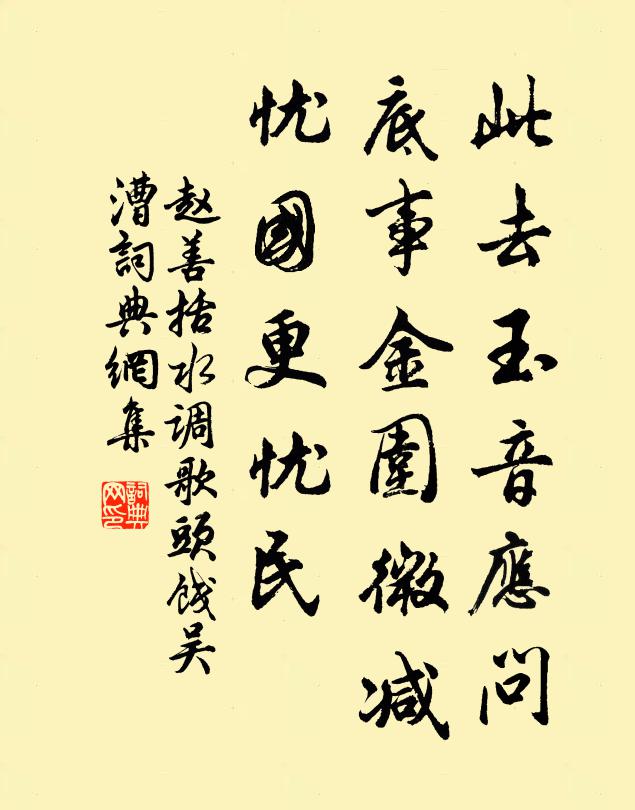 此去玉音應問
底事金圍微减
忧國更忧民
赵善括水调歌頭餞吴
漕詞典網集
詞典
网印